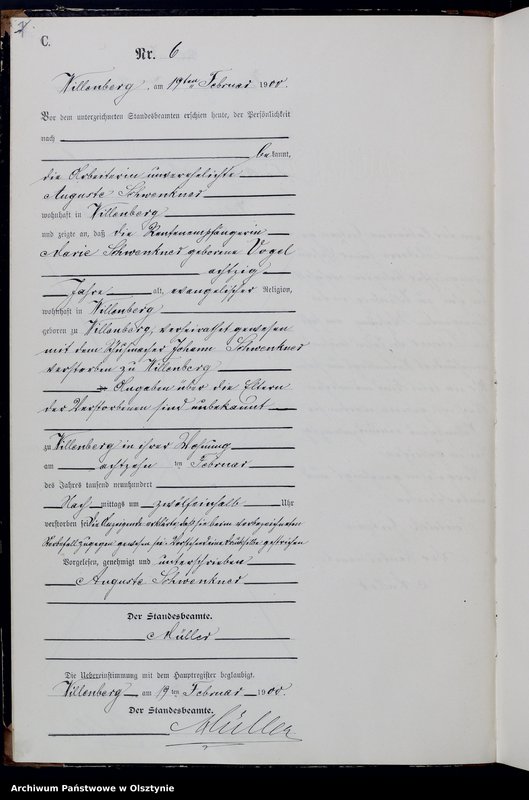 C.
Nr. 6
Willenberg, am 19ten Februar 1900.
Vor dem unterzeichneten Standesbeamten erschien heute, der Persönlichkeit
nach
be kannt,
die Arbeiterin unverehelichte
Auguste Schwenkner
wohnhaft in Willenberg
und zeigte an, daß die Rentenempfängerin
Marie Schwenkner geborene Vogel
achtzig
Jahre alt, evangelischer Religion,
wohnhaft in Willenberg
geboren zu Willenberg, verheirathet gewesen
mit dem Schuhmacher Johann Schwenkner
verstorben zu Willenberg
Angaben über die Eltern
der Verstorbenen sind unbekannt
zu Willenberg in ihrer Wohnung
am achtzehn ten Februar
des Jahres tausend neunhundert
Nach mittags um zwölfeinhalb Uhr
verstorben sei Die Anzeigende erklärte, daß sie beim vorbezeichneten
Sterbefall zugegen gewesen sei. Vorstehend eine Druksilbe gestrichen
Vorgelesen, genehmigt und unterschrieben
Auguste Schwenkner
Der Standesbeamte.
Müller
Die Uebereinstimmung mit dem Hauptregister beglaubigt.
Willenberg am 19 ten Februar 1900.
Der Standesbeamte.
Müller
Archiwum Państwowe w Olsztynie